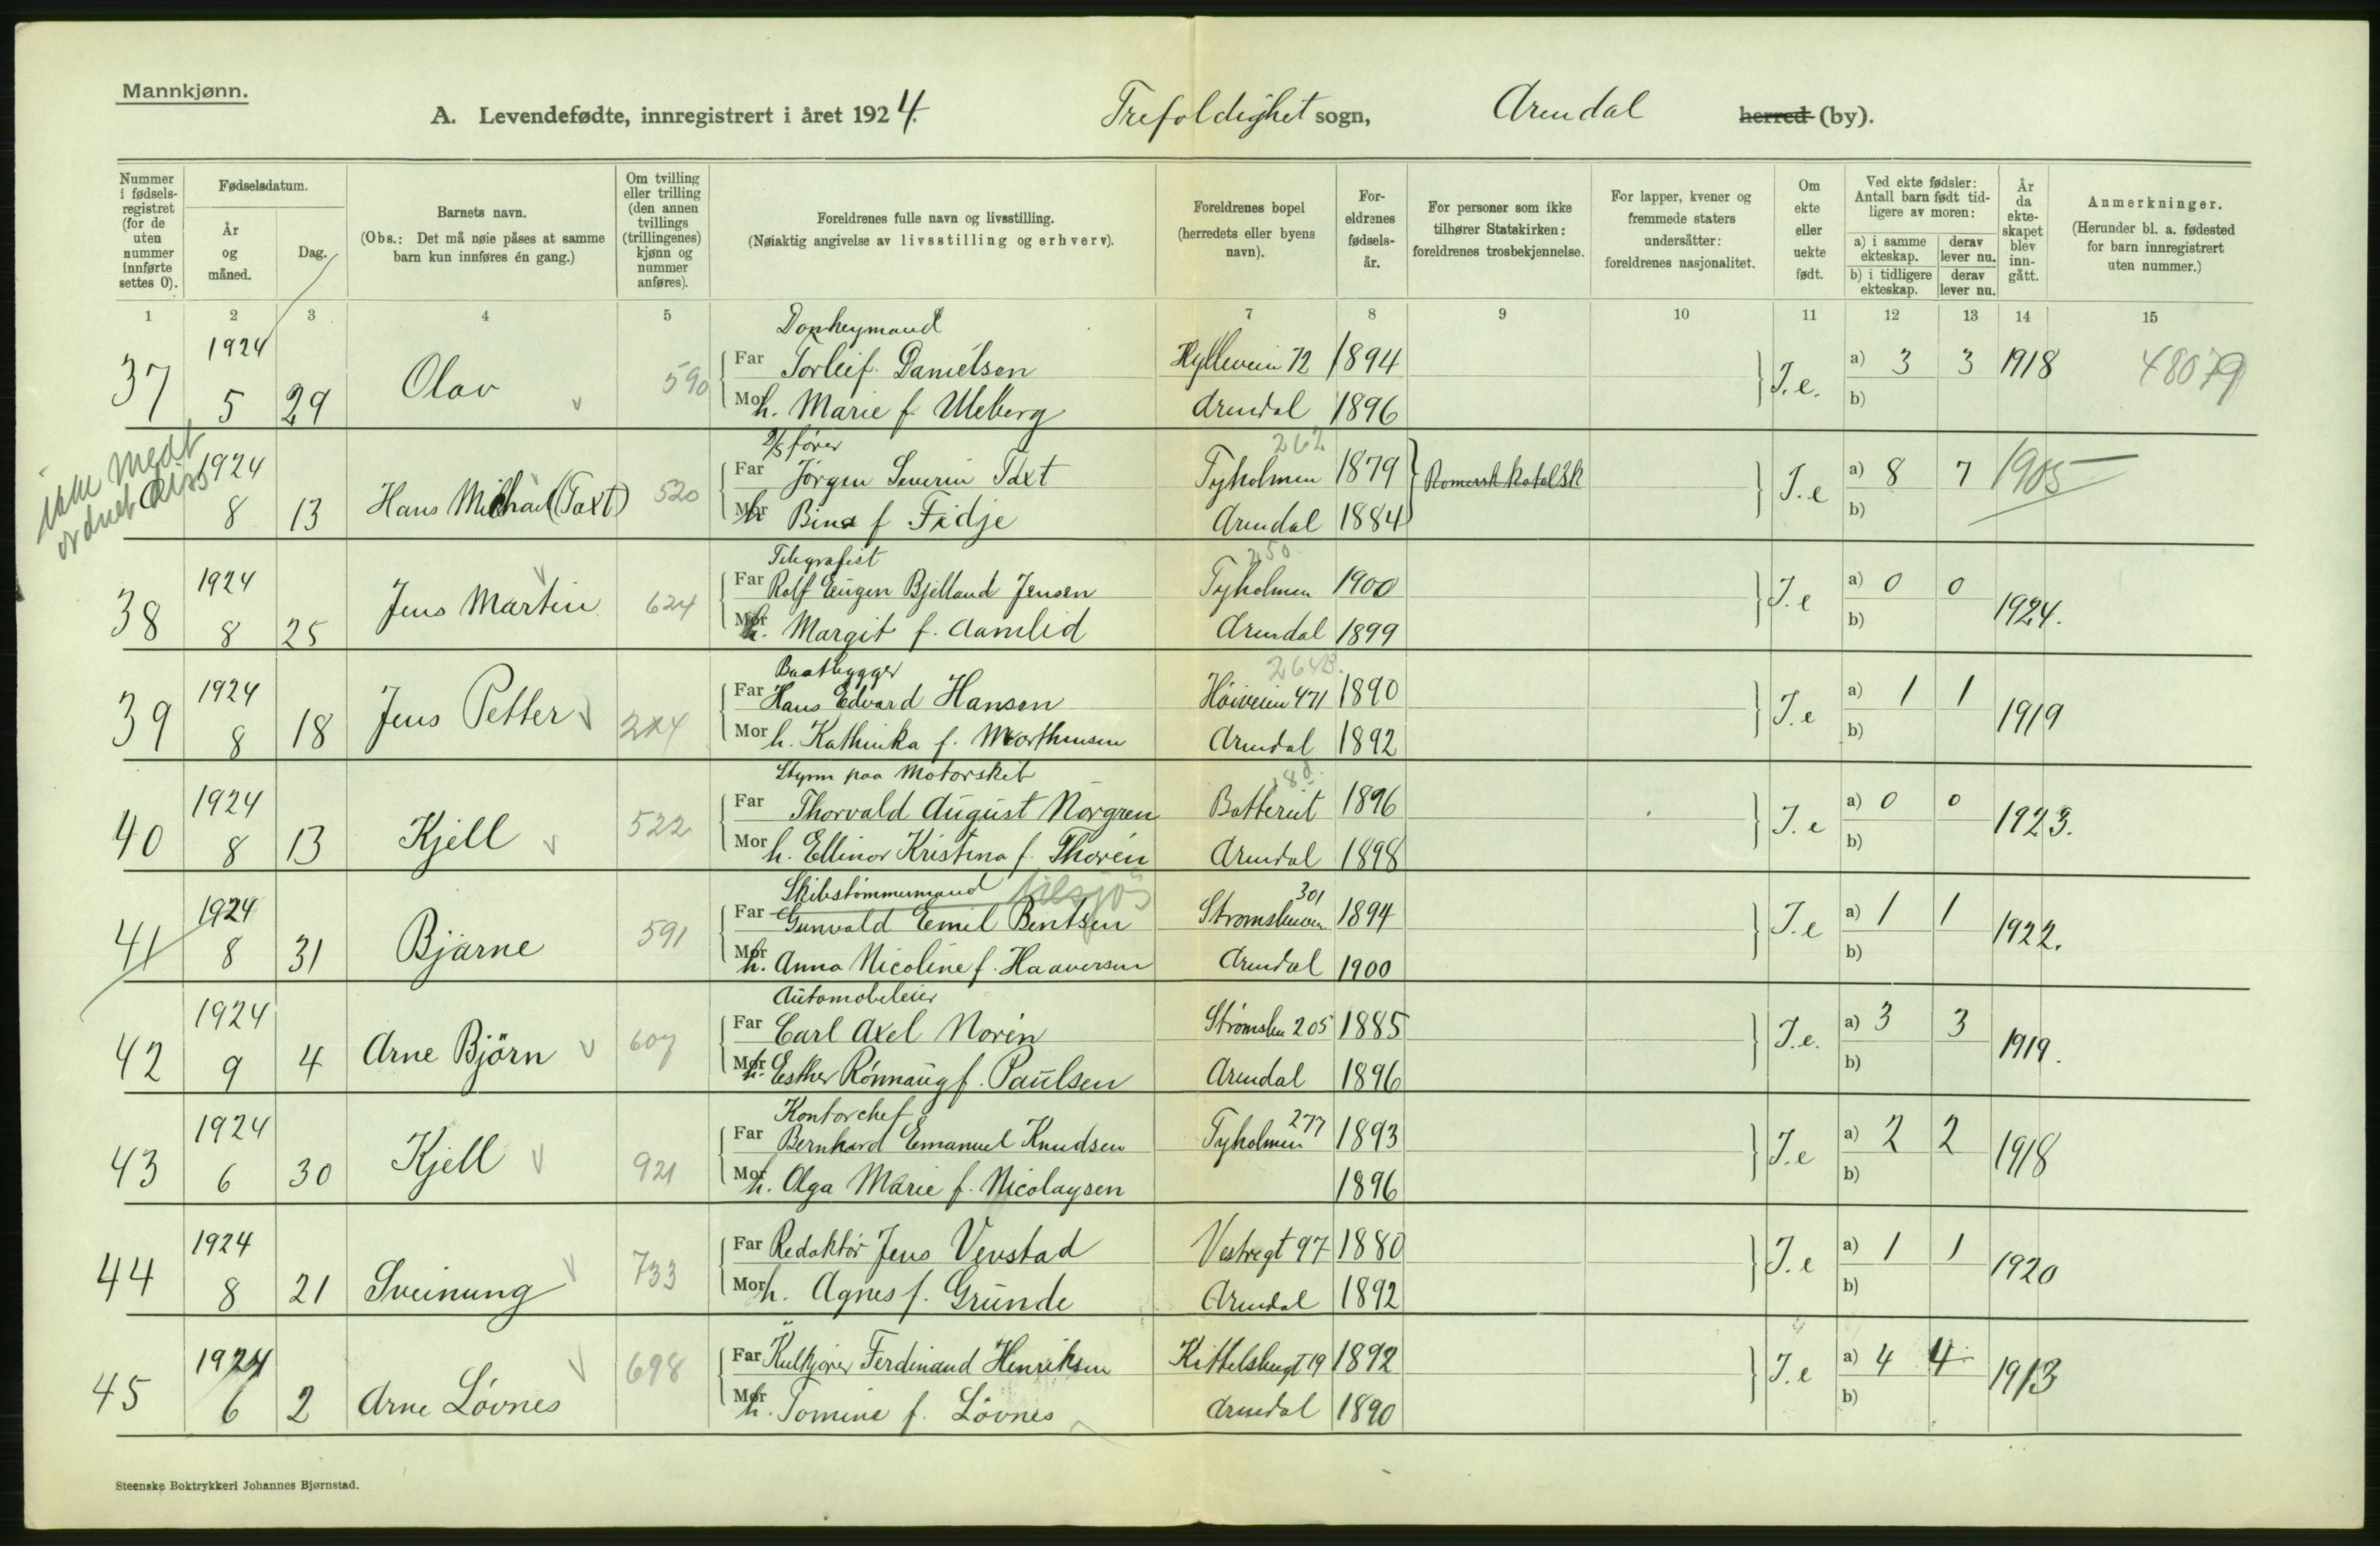 Mannkjønn.
A. Levendefødte, innregistrert i året 1924. Trefoldighet sogn, Arendal herred (by).
Nummer i fødsels-registret (for de uten nummer innførte settes 0).
Fødselsdatum.
År og måned.
Dag.
Barnets navn.
(Obs.: Det må nøie påses at samme barn kun innføres én gang.)
Om tvilling eller trilling (den annen tvillings (trillingenes) kjønn og nummer anføres).
Foreldrenes fulle navn og livsstilling.
(Nøiaktig angivelse av livsstilling og erhverv).
Foreldrenes bopel (herredets eller byens navn).
For-eldrenes fødsels-år.
For personer som ikke tilhører Statskirken: foreldrenes trosbekjennelse.
For lapper, kvener og fremmede staters undersåtter: foreldrenes nasjonalitet.
Om ekte eller uekte født.
Ved ekte fødsler: Antall barn født tid-ligere av moren:
a) i samme ekteskap.
derav lever nu.
b) i tidligere ekteskap.
derav lever nu.
År da ekte-skapet blev inn-gått.
Anmerkninger.
(Herunder bl. a. fødested for barn innregistrert uten nummer.)
1 2 3 4 5 7 8 9 10 11 12 13 14 15
Donkeymand
37 1924 5 29 Olav 590 Far Torleif Danielsen Hylleveien 72 1894 I.e. a) 3 3 1918 48079
Mor h. Marie f. Uleberg Arendal 1896 b)
ikke medt ordnet
D/S fører 262
1924 8 13 Hans Michael (Taxt) 520 Far Jørgen Severin Taxt Tyholmen 1879 Romersk katolsk I.e a) 8 7 1905
Mor h Bina f Fidje Arendal 1884 b)
Telegrafist 250
38 1924 8 25 Jens Martin 624 Far Rolf Eugen Bjelland Jensen Tyholmen 1900 I.e a) 0 0 1924.
Mor h. Margit f. Aamlid Arendal 1899 b)
Baatbygger 264B.
39 1924 8 18 Jens Petter 224 Far Hans Edvard Hansen Høiveien 471 1890 I.e a) 1 1 1919
Mor h. Kathinka f. Morthensen Arendal 1892 b)
Styrm paa Motorskib
40 1924 8 13 Kjell 522 Far Thorvald August Norgren Batteriet 1896 I.e a) 0 0 1923.
Mor h. Ellinor Kristina f. Thorén Arendal 1898 b)
Skibstømmermand tilsjøs 301
41 1924 8 31 Bjarne 591 Far Gunvald Emil Bentsen 1894 I.e a) 1 1 1922.
Mor h. Anna Nicoline f. Haaversen Arendal 1900 b)
Automobileier
42 1924 9 4 Arne Björn 607 Far Carl Axel Norén Strømsbu 205 1885 I.e. a) 3 3 1919.
Mor h. Esther Rønnaug f. Paulsen Arendal 1896 b)
Kontorchef 277
43 1924 6 30 Kjell 921 Far Bernhard Emanuel Knudsen Tyholmen 1893 I.e a) 2 2 1918
Mor h. Olga Marie f. Nicolaysen 1896 b)
44 1924 8 21 Sveinung 733 Far Redaktør Jens Vevstad Vestregt 97 1880 I.e a) 1 1 1920
Mor h. Agnes f. Grunde Arendal 1892 b)
45 1924 6 2 Arne Løvnes 698 Far Kulkjører Ferdinand Henriksen Kittelsbugt 19 1892 I.e a) 4 4 1913
Mor h. Tomine f. Løvnes Arendal 1890 b)
Steenske Boktrykkeri Johannes Bjørnstad.